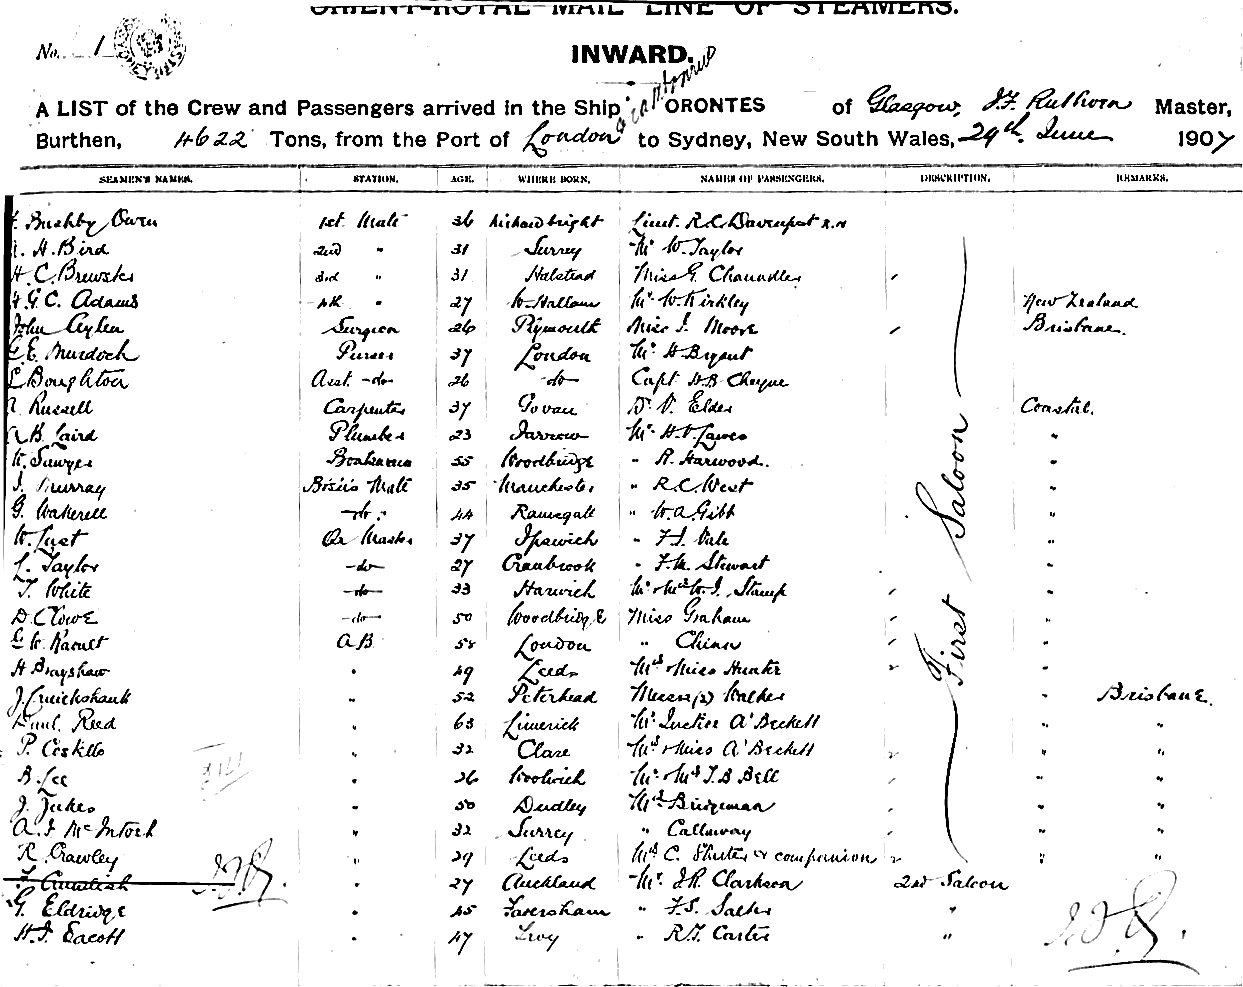 ORIENT-ROYAL MAIL LINE OF STEAMERS.
No. 1
INWARD.
A LIST of the Crew and Passengers arrived in the Ship ORONTES of Glasgow, J.F. Ruthven Master,
Burthen, 4622 Tons, from the Port of London to Sydney, New South Wales, 29th June 1907
SEAMEN'S NAMES. STATION. AGE. WHERE BORN. NAMES OF PASSENGERS. DESCRIPTION. REMARKS.
Bushby Owen 1st Mate 36 Lieut. R.C. Davenport R.N
A. H. Bird 2nd " 31 Surrey Mr W. Taylor
H C. Brewster 3rd " 31 Halstead Miss G. Chaundler
H G. C. Adams 4th " 27 W. Hallam Mr. W. Kirkley New Zealand
John Aylen Surgeon 26 Plymouth Miss J. Moore Brisbane.
E. Murdoch Purser 37 London Mr H Bryant
Boughton Asst -do- 26 -do- Capt H.B. Cheyne
A. Russell Carpenter 37 Govan Dr. V. Elder Coastal.
A B. Laird Plumber 23 Jarrow Mr. H.V. Lawes "
W. Sawyer Boatswain 55 Woodbridge " R. Harwood. "
J. Murray Bosn's Mate 35 Manchester " R.C. West "
G. Wakerell -do- 44 Ramsgate " W. A. Gibb "
W. Last Qr Master 37 Ipswich " F. J. Vale "
L. Taylor -do- 27 Cranbrook " F. M. Stewart "
T. White -do- 33 Harwich Mr & Mrs W. J. Stamp "
D. Clowe -do- 50 Woodbridge Miss Graham "
E. W. Raoult A B 58 London " Chinn "
H Brayshaw " 49 Leeds Mrs & Miss Hunter "
J. Cruickshank " 52 Peterhead Messrs (2) Walker " Brisbane.
Reed " 63 Limerick Mr. Justice A'Beckett " "
P. Costillo " 32 Clare Mrs & Miss A'Beckett " "
B. Lee " 26 Woolwich Mr. & Mrs T. B Bell " "
J. Jukes " 50 Dudley Mrs Bridgeman " "
A. J McIntosh " 32 Surrey " Callaway " "
R. Crawley " 29 Leeds Mrs C. Shuter & companion " "
27 Auckland Mr. J. R. Clarkson 2nd Saloon
G. Eldridge " 45 Faversham " F. S. Salter "
H. J. Eacott " 47 Troy " R. J. Carter "
First Saloon